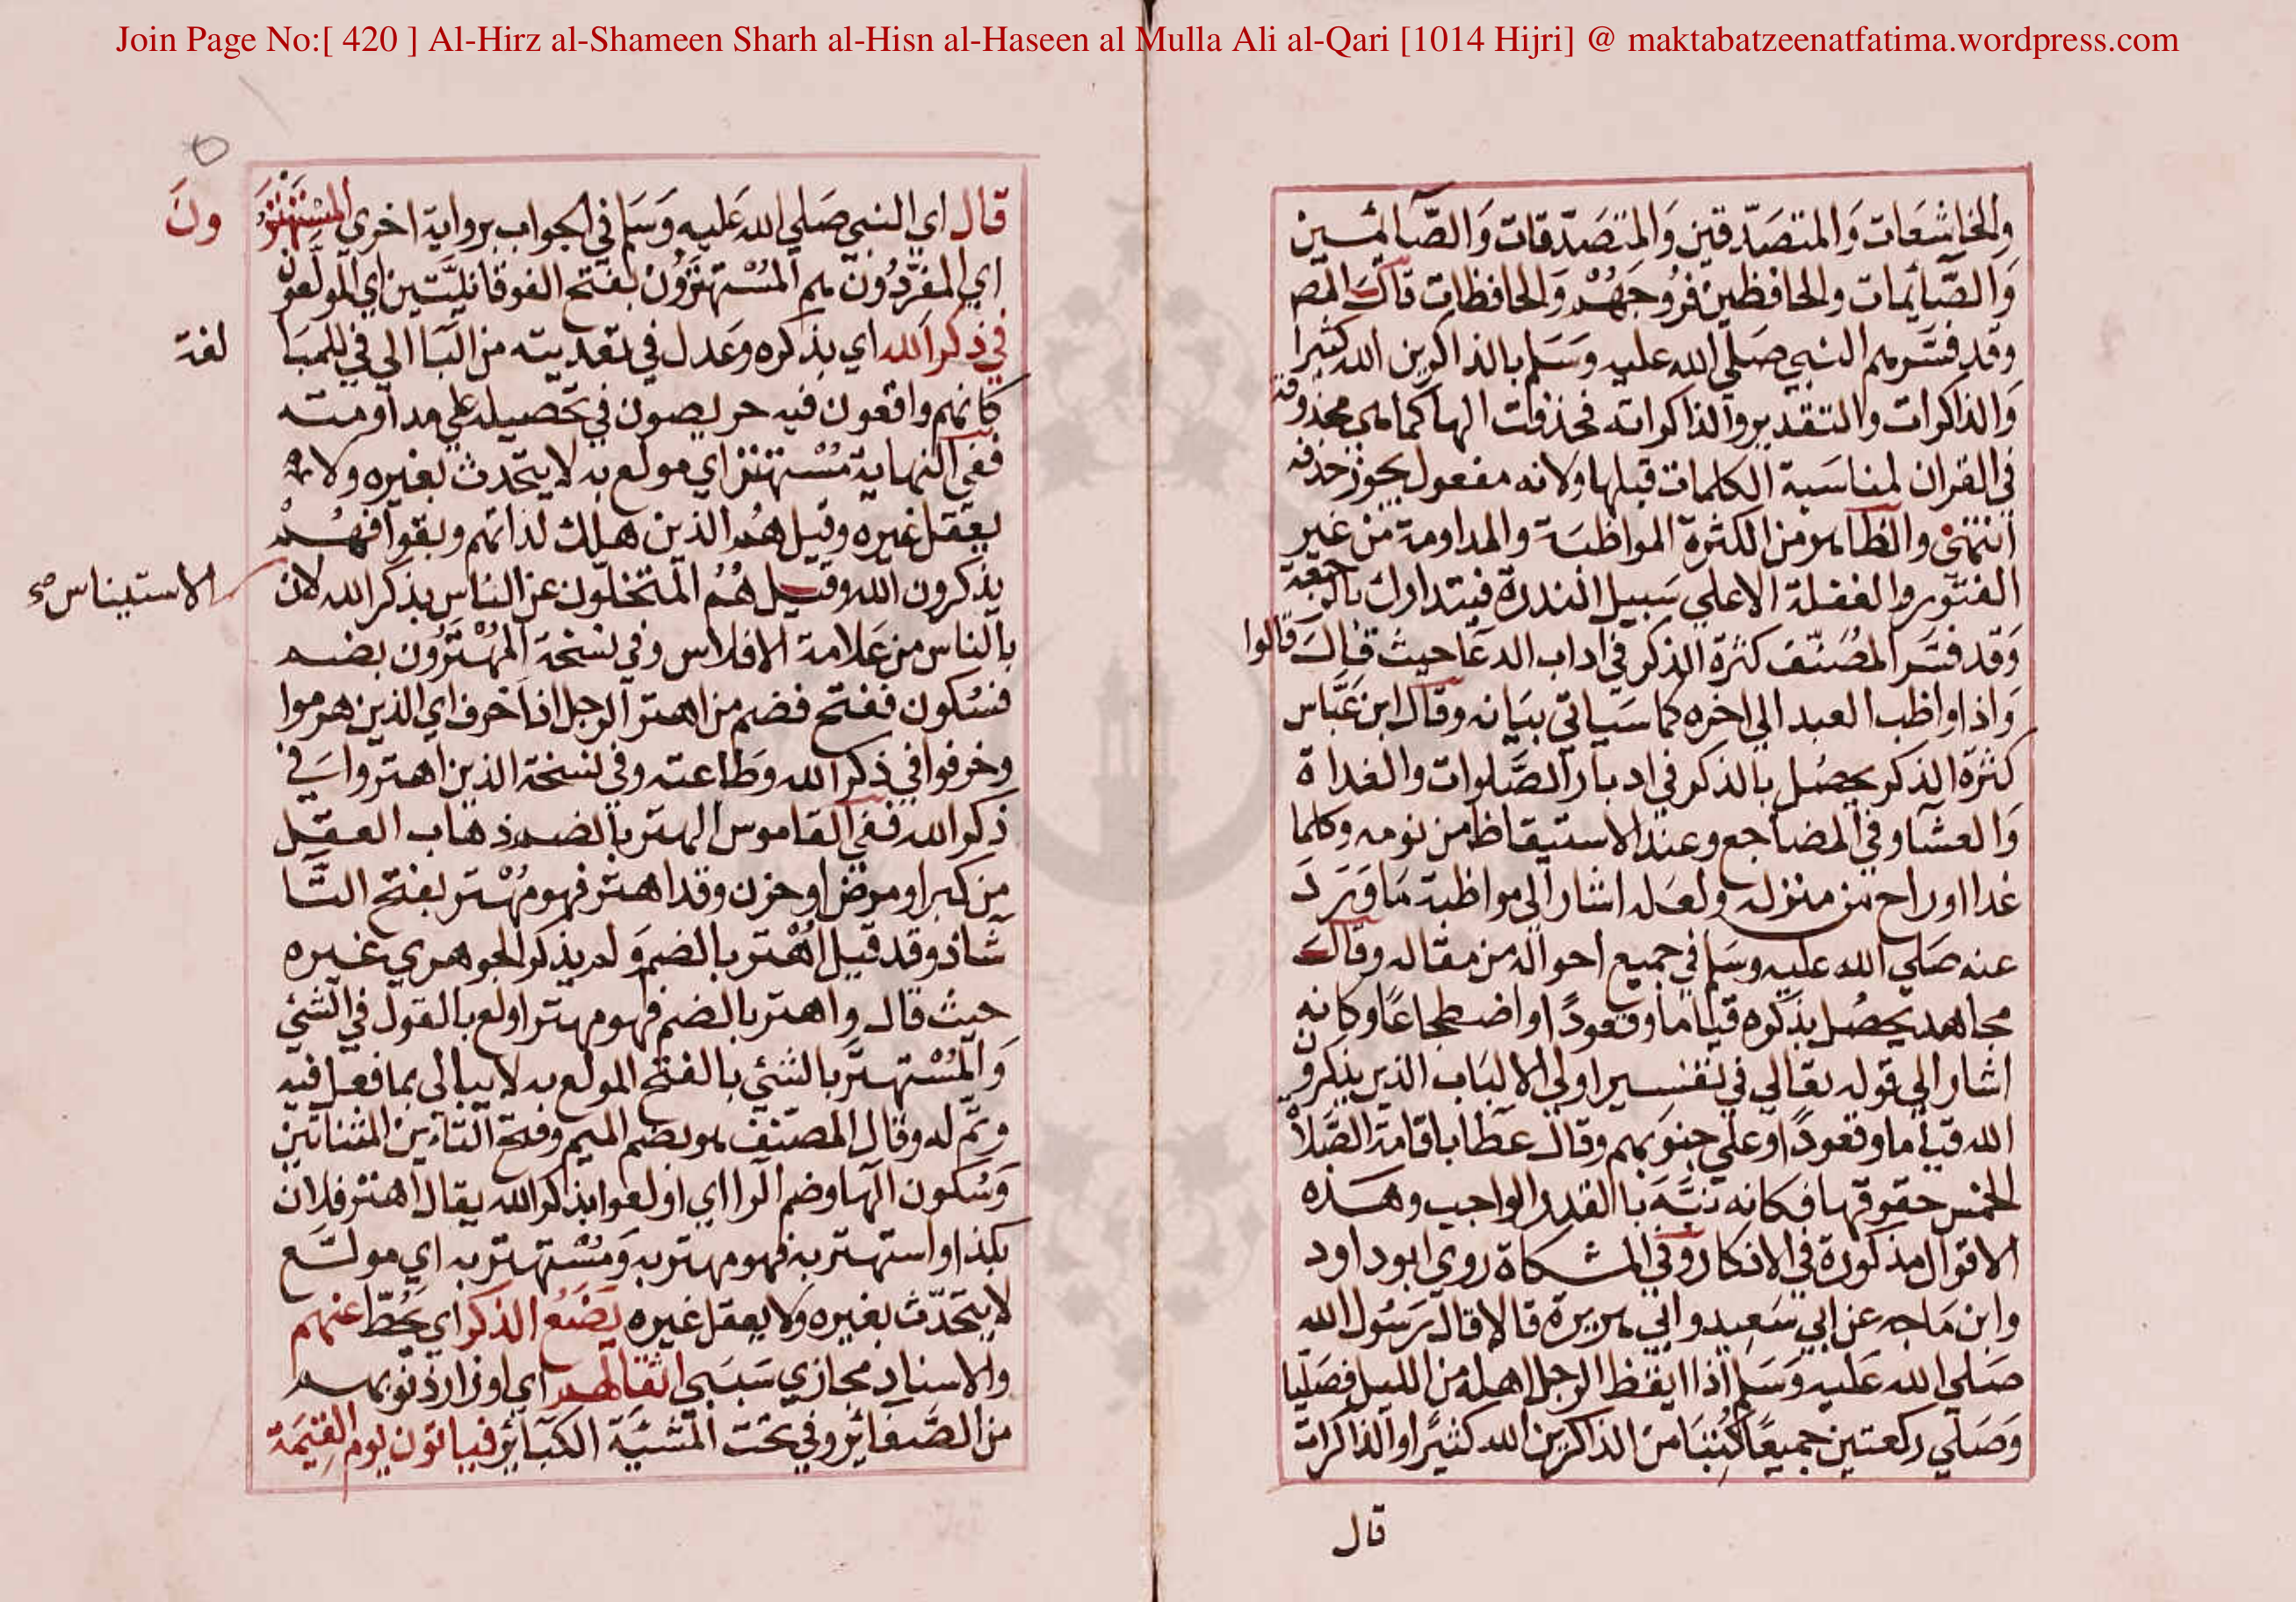 Join Page No:[ 420 ] Al-Hirz al-Shameen Sharh al-Hisn al-Haseen al Mulla Ali al-Qari [1014 Hijri] @ maktabatzeenatfatima.wordpress.com
والخاشعات والمتصدقين والمتصدقات والصائمين
والصائمات والحافظين فروجهم والحافظات قال المص
وقد فسرهم النبي صلى الله عليه وسلم بالذاكرين الله كثيرا
والذاكرات والتقدير والذاكراته فحذفت الها كما هي محذوفة
في القران لمناسبة الكلمات قبلها ولانه مفعول يجوز حذفه
انتهى والظاهر من الكثرة المواظبة والمداومة من غير
الفتور والغفلة الا على سبيل الندرة فيتدارك بالرجعة
وقد فسر المصنف كثرة الذكر في اداب الدعا حيث قال قالوا
واذا واظب العبد الى اخره كما سياتي بيانه وقال ابن عباس
كثرة الذكر يحصل بالذكر في ادبار الصلوات والغداة
والعشا وفي المضاجع وعند الاستيقاظ من نومه وكلما
غدا او راح من منزله ولعله اشار الى مواظبة ما ورد
عنه صلى الله عليه وسلم في جميع احواله من مقاله وقال
مجاهد يحصل بذكره قياما وقعودا واضطجاعا وكانه
اشار الى قوله تعالى في تفسير اولي الالباب الذين يذكرون
الله قياما وقعودا وعلى جنوبهم وقال عطا باقامة الصلاة
الخمس حقوقها فكانه نبه بالقدر الواجب وهذه
الاقوال مذكورة في الاذكار وفي المشكاة روى ابو داود
وابن ماجه عن ابي سعيد وابي هريرة قالا قال رسول الله
صلى الله عليه وسلم اذا ايقظ الرجل اهله من الليل فصليا
وصلى ركعتين جميعا كتبنا من الذاكرين الله كثيرا والذاكرات
قال
قال اي النبي صلى الله عليه وسلم في الجواب برواية اخرى المستهترون
اي المفردون هم المستهترون بفتح الفوقانيتين اي المولعون
في ذكر الله اي بذكره وعدل في تعديته من البا الى في للمبالغة
كانهم واقعون فيه حريصون في تحصيله على مداومته
ففي النهاية مستهتر اي مولع به لا يتحدث بغيره ولا
يعقل غيره وقيل هم الذين هلك لداتهم وبقوا فهم
يذكرون الله وقيل هم المتخلون عن الناس بذكر الله لان الاستيناس صح
بالناس من علامة الافلاس وفي نسخة المهترون بضم
فسكون ففتح فضم من اهتر الرجل اذا خرف اي الذين هرموا
وخرفوا في ذكر الله وطاعته وفي نسخة الذين اهتروا في
ذكر الله ففي القاموس الهتر بالضم ذهاب العقل
من كبر او مرض او حزن وقد اهتر فهو مهتر بفتح التا
شاذ وقد قيل اهتر بالضم ولم يذكر الجوهري غيره
حيث قال واهتر بالضم فهو مهتر اولع بالقول في الشئ
والمستهتر بالشئ بالفتح المولع به لا يبالى بما فعل فيه
وتم له وقال المصنف هو بضم الميم وفتح التاءين المثناتين
وسكون الها وضم الرا اي اولعوا بذكر الله يقال اهتر فلان
بكذا واستهتر به فهو مهتر به ومستهتر به اي مولع
لا يتحدث بغيره ولا يعقل غيره يضع الذكر اي يحط عنهم
والاسناد مجازي سببي اثقالهم اي اوزار ذنوبهم
من الصغائر وفي تحت المشيئة الكبائر فياتون يوم القيمة